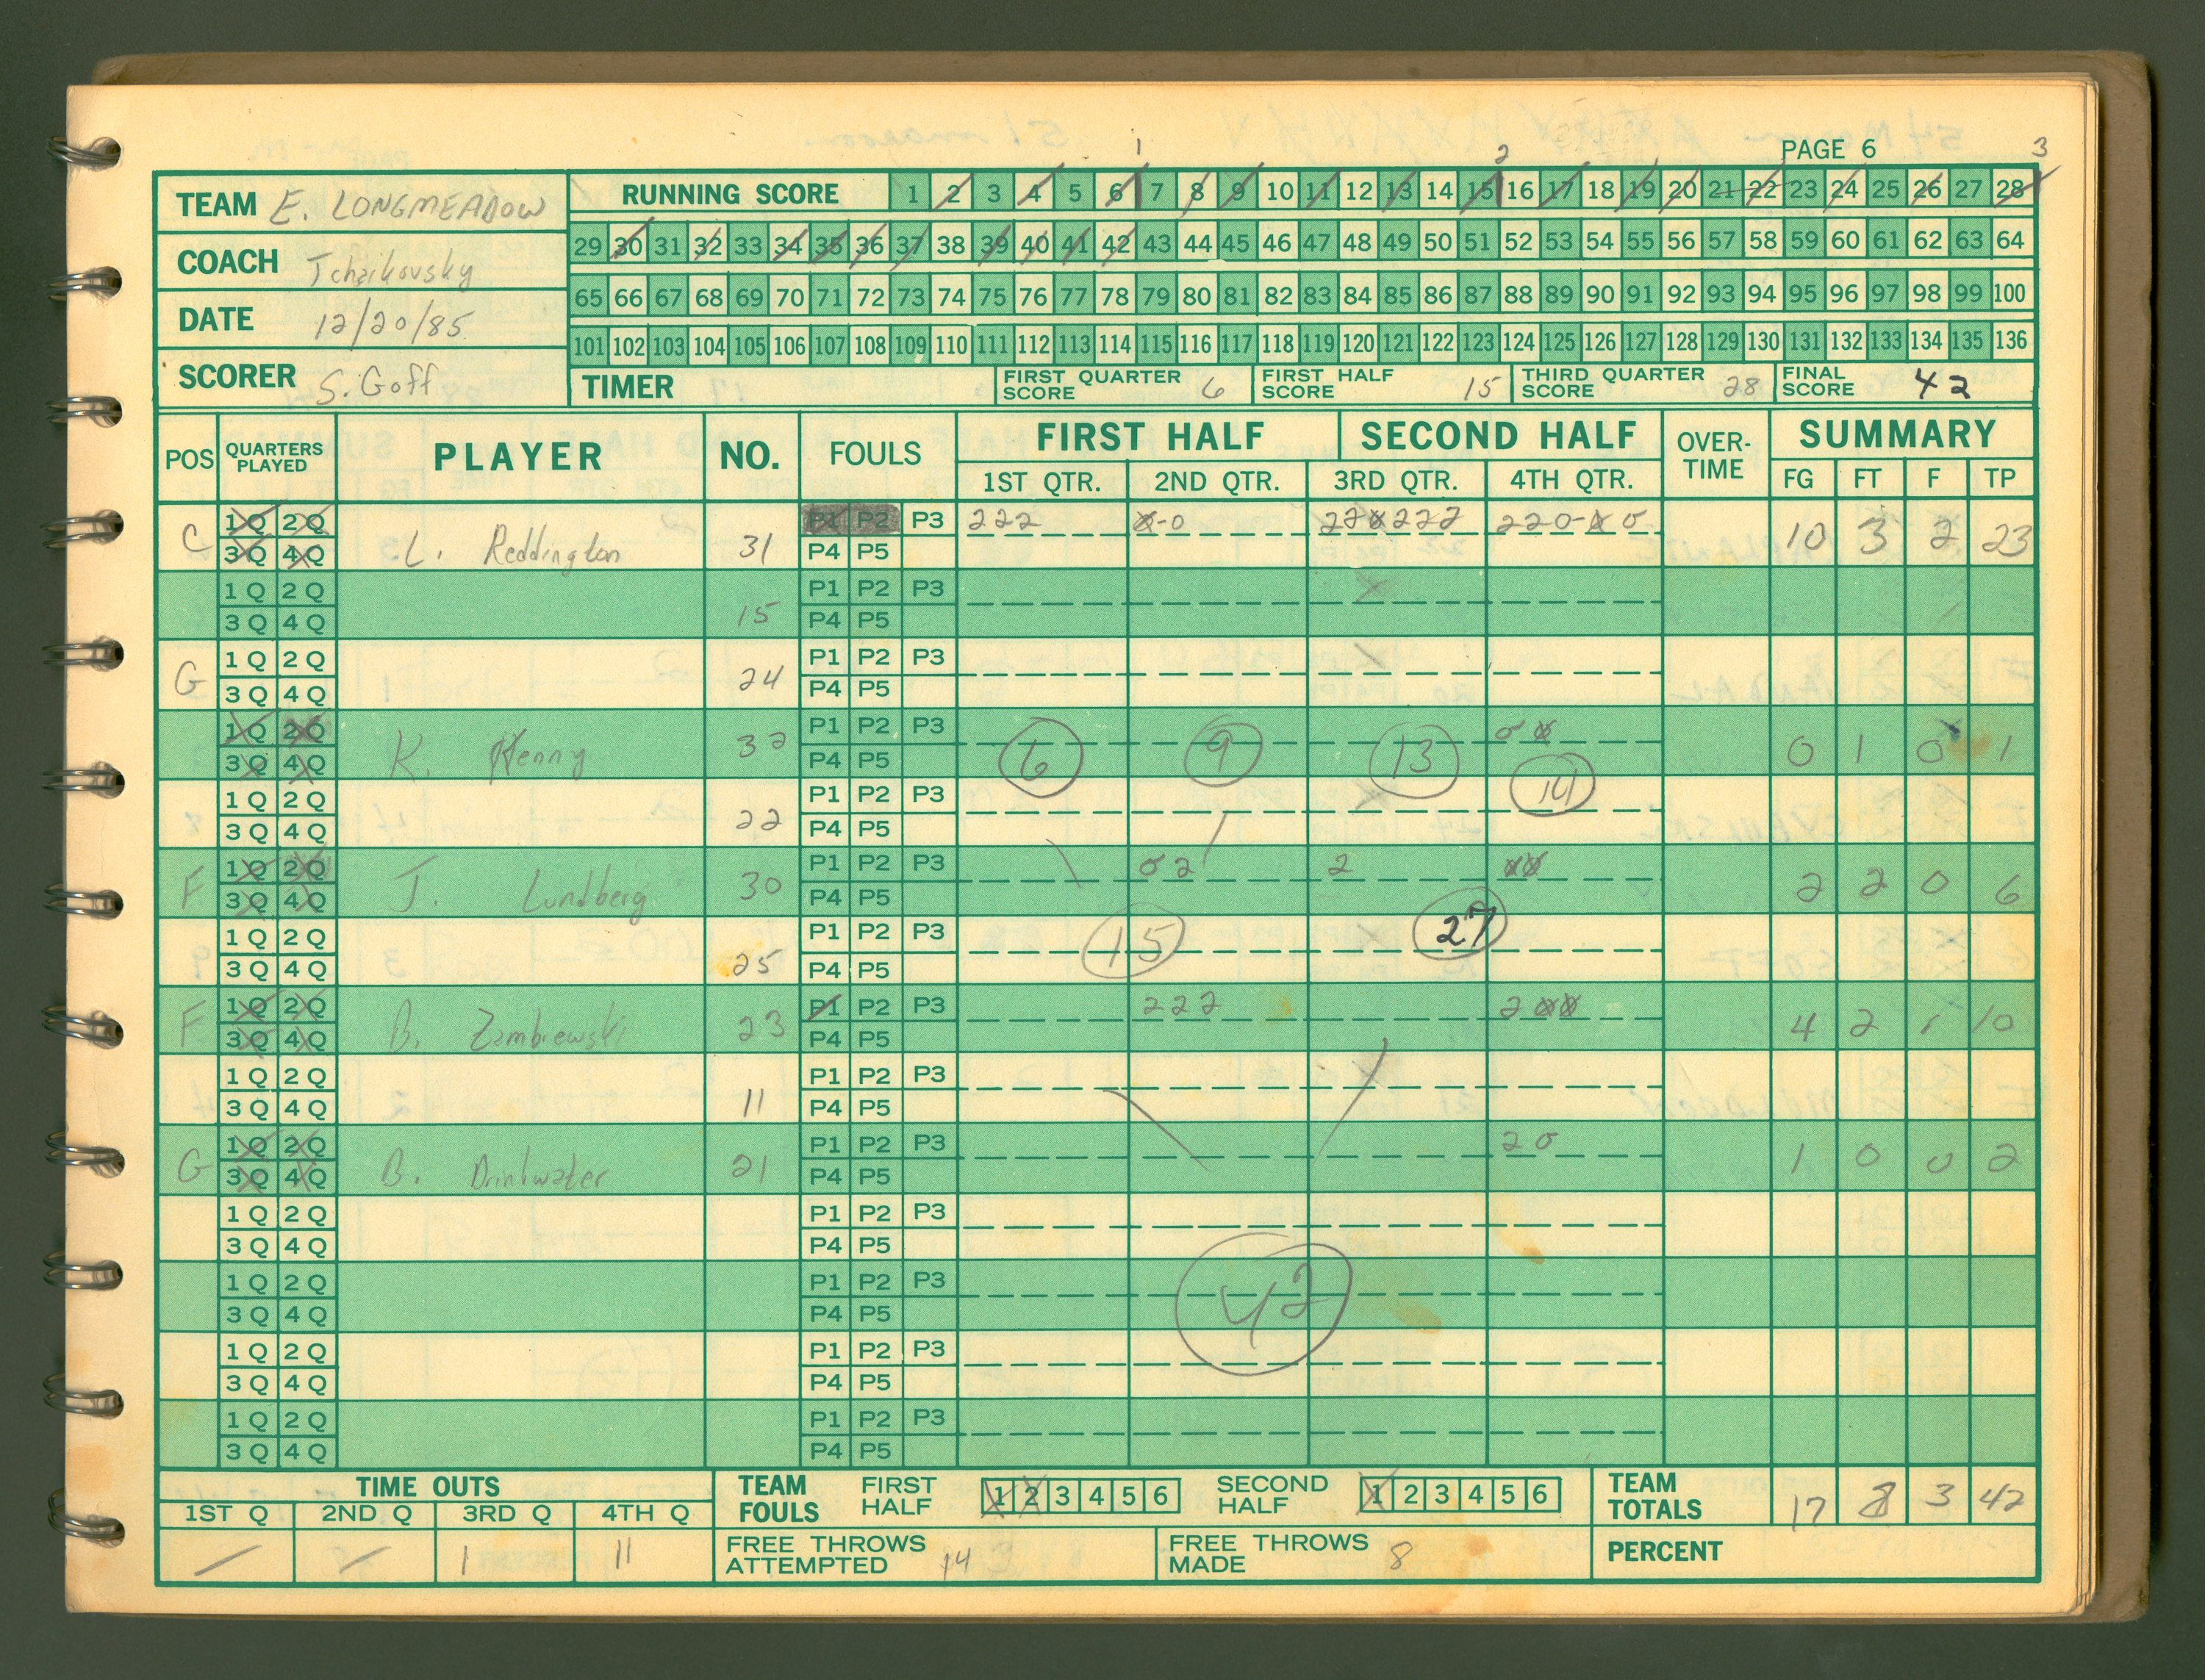 1 2 PAGE 6 3
TEAM E. LONGMEADOW
COACH Tchaikovsky
DATE 12/20/85
SCORER S. Goff
RUNNING SCORE 1 2 3 4 5 6 7 8 9 10 11 12 13 14 15 16 17 18 19 20 21 22 23 24 25 26 27 28
29 30 31 32 33 34 35 36 37 38 39 40 41 42 43 44 45 46 47 48 49 50 51 52 53 54 55 56 57 58 59 60 61 62 63 64
65 66 67 68 69 70 71 72 73 74 75 76 77 78 79 80 81 82 83 84 85 86 87 88 89 90 91 92 93 94 95 96 97 98 99 100
101 102 103 104 105 106 107 108 109 110 111 112 113 114 115 116 117 118 119 120 121 122 123 124 125 126 127 128 129 130 131 132 133 134 135 136
TIMER FIRST QUARTER SCORE 6 FIRST HALF SCORE 15 THIRD QUARTER SCORE 28 FINAL SCORE 42
POS QUARTERS PLAYED PLAYER NO. FOULS FIRST HALF SECOND HALF OVER-TIME SUMMARY
1ST QTR. 2ND QTR. 3RD QTR. 4TH QTR. FG FT F TP
1Q 2Q P1 P2 P3 222
C 3Q 4Q L. Reddington 31 P4 P5 10 3 2 23
1Q 2Q P1 P2 P3
3Q 4Q 15 P4 P5
1Q 2Q P1 P2 P3
G 3Q 4Q 24 P4 P5
1Q 2Q P1 P2 P3
3Q 4Q K. Kenny 32 P4 P5 6 9 13 0 1 0 1
1Q 2Q P1 P2 P3 14
3Q 4Q 22 P4 P5
1Q 2Q P1 P2 P3 0 2 2
F 3Q 4Q J. Lundberg 30 P4 P5 2 2 0 6
1Q 2Q P1 P2 P3 15 27
3Q 4Q 25 P4 P5
1Q 2Q P1 P2 P3 222 2
F 3Q 4Q B. Zambrewski 23 P4 P5 4 2 1 10
1Q 2Q P1 P2 P3
3Q 4Q 11 P4 P5
1Q 2Q P1 P2 P3 2 0
G 3Q 4Q B. Drinkwater 21 P4 P5 1 0 0 2
1Q 2Q P1 P2 P3
3Q 4Q P4 P5
1Q 2Q P1 P2 P3
3Q 4Q P4 P5 42
1Q 2Q P1 P2 P3
3Q 4Q P4 P5
1Q 2Q P1 P2 P3
3Q 4Q P4 P5
TIME OUTS
1ST Q 2ND Q 3RD Q 4TH Q
1 11
TEAM FOULS FIRST HALF 1 2 3 4 5 6 SECOND HALF 1 2 3 4 5 6
TEAM TOTALS 17 8 3 42
FREE THROWS ATTEMPTED 14 FREE THROWS MADE 8
PERCENT